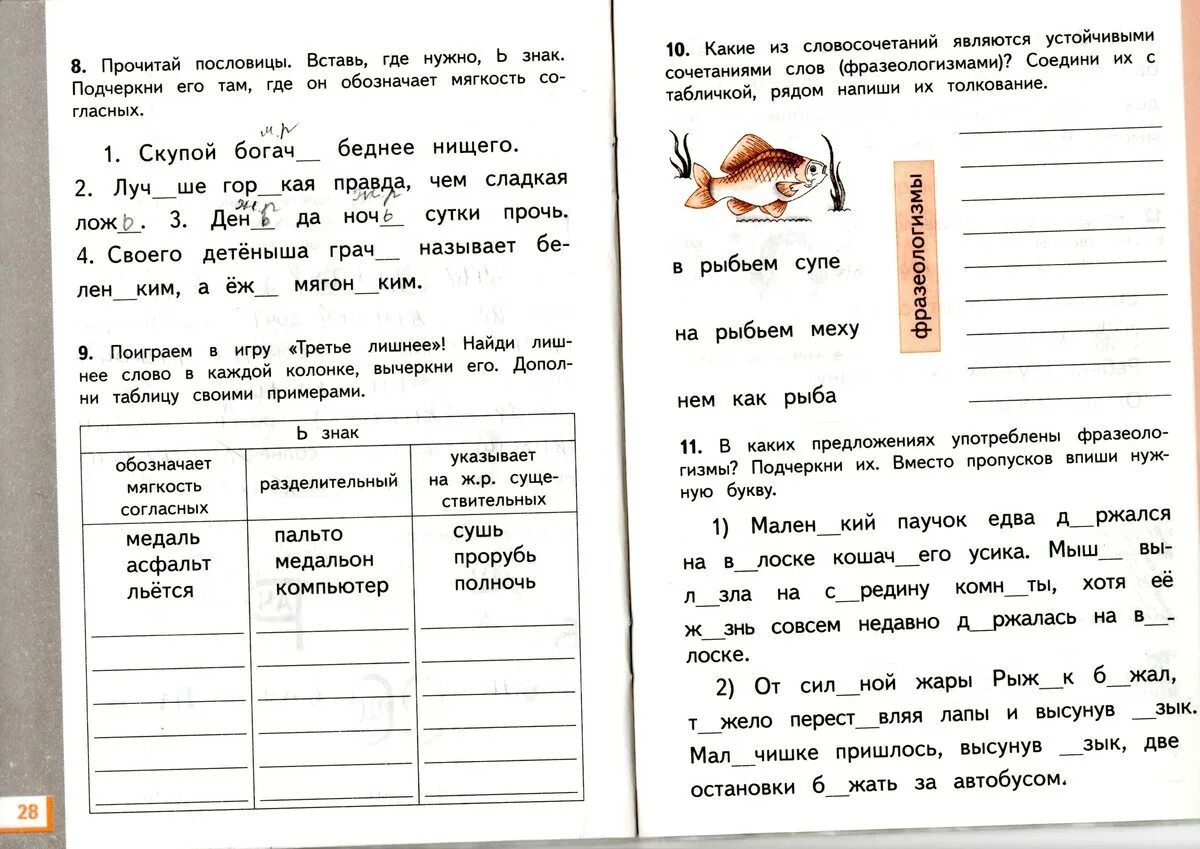 8. Прочитай пословицы. Вставь, где нужно, Ь знак.
Подчеркни его там, где он обозначает мягкость со-
гласных.
м.р
1. Скупой богач__ беднее нищего.
2. Луч__ше гор__кая правда, чем сладкая
ж.р ж.р
ложь. 3. День да ночь сутки прочь.
4. Своего детёныша грач__ называет бе-
лен__ким, а ёж__ мягон__ким.
9. Поиграем в игру «Третье лишнее»! Найди лиш-
нее слово в каждой колонке, вычеркни его. Допол-
ни таблицу своими примерами.
Ь знак
обозначает
мягкость
согласных
разделительный
указывает
на ж.р. суще-
ствительных
медаль
асфальт
льётся
пальто
медальон
компьютер
сушь
прорубь
полночь
28
10. Какие из словосочетаний являются устойчивыми
сочетаниями слов (фразеологизмами)? Соедини их с
табличкой, рядом напиши их толкование.
в рыбьем супе
на рыбьем меху
нем как рыба
фразеологизмы
11. В каких предложениях употреблены фразеоло-
гизмы? Подчеркни их. Вместо пропусков впиши нуж-
ную букву.
1) Мален__кий паучок едва д__ржался
на в__лоске кошач__его усика. Мыш__ вы-
л__зла на с__редину комн__ты, хотя её
ж__знь совсем недавно д__ржалась на в__-
лоске.
2) От сил__ной жары Рыж__к б__жал,
т__жело перест__вляя лапы и высунув __зык.
Мал__чишке пришлось, высунув __зык, две
остановки б__жать за автобусом.